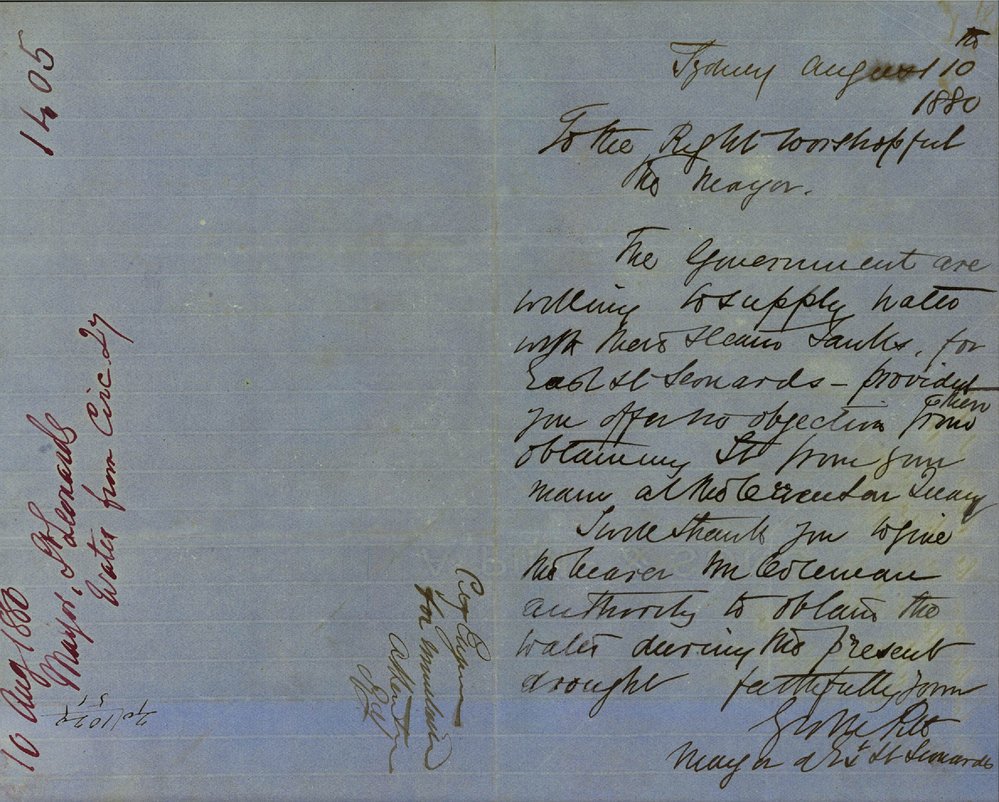 1405
10 Aug 1880
Mayor, St Leonards
Water from Circ. Qy
City Engineer
for immediate
attention
th
Sydney August 10
1880
To the Right Worshopful
The Mayor.
The Government are
willing to supply water
with there Steam Tanks, for
East St Leonards – provided
you offer no objection from them
obtaining It from your
main at the Circular Quay
I will thank you to give
the bearer Mr Coleman
authority to obtain the
water during the present
drought faithfully yours
Mayor of Et St Leonards